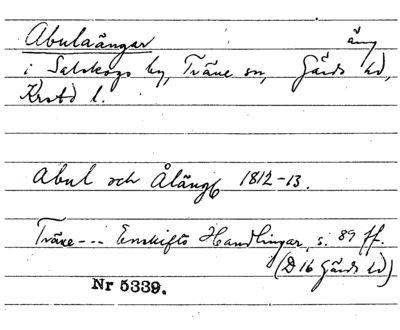 Abulaängar äng
i Satskogs by, Träne sn, Gärds hd,
Krstd l.
Abul och Åläng 1812-13.
Träne --- Enskifts Handlingar, s. 89 ff.
(D 16 Gärds hd)
Nr 5339.